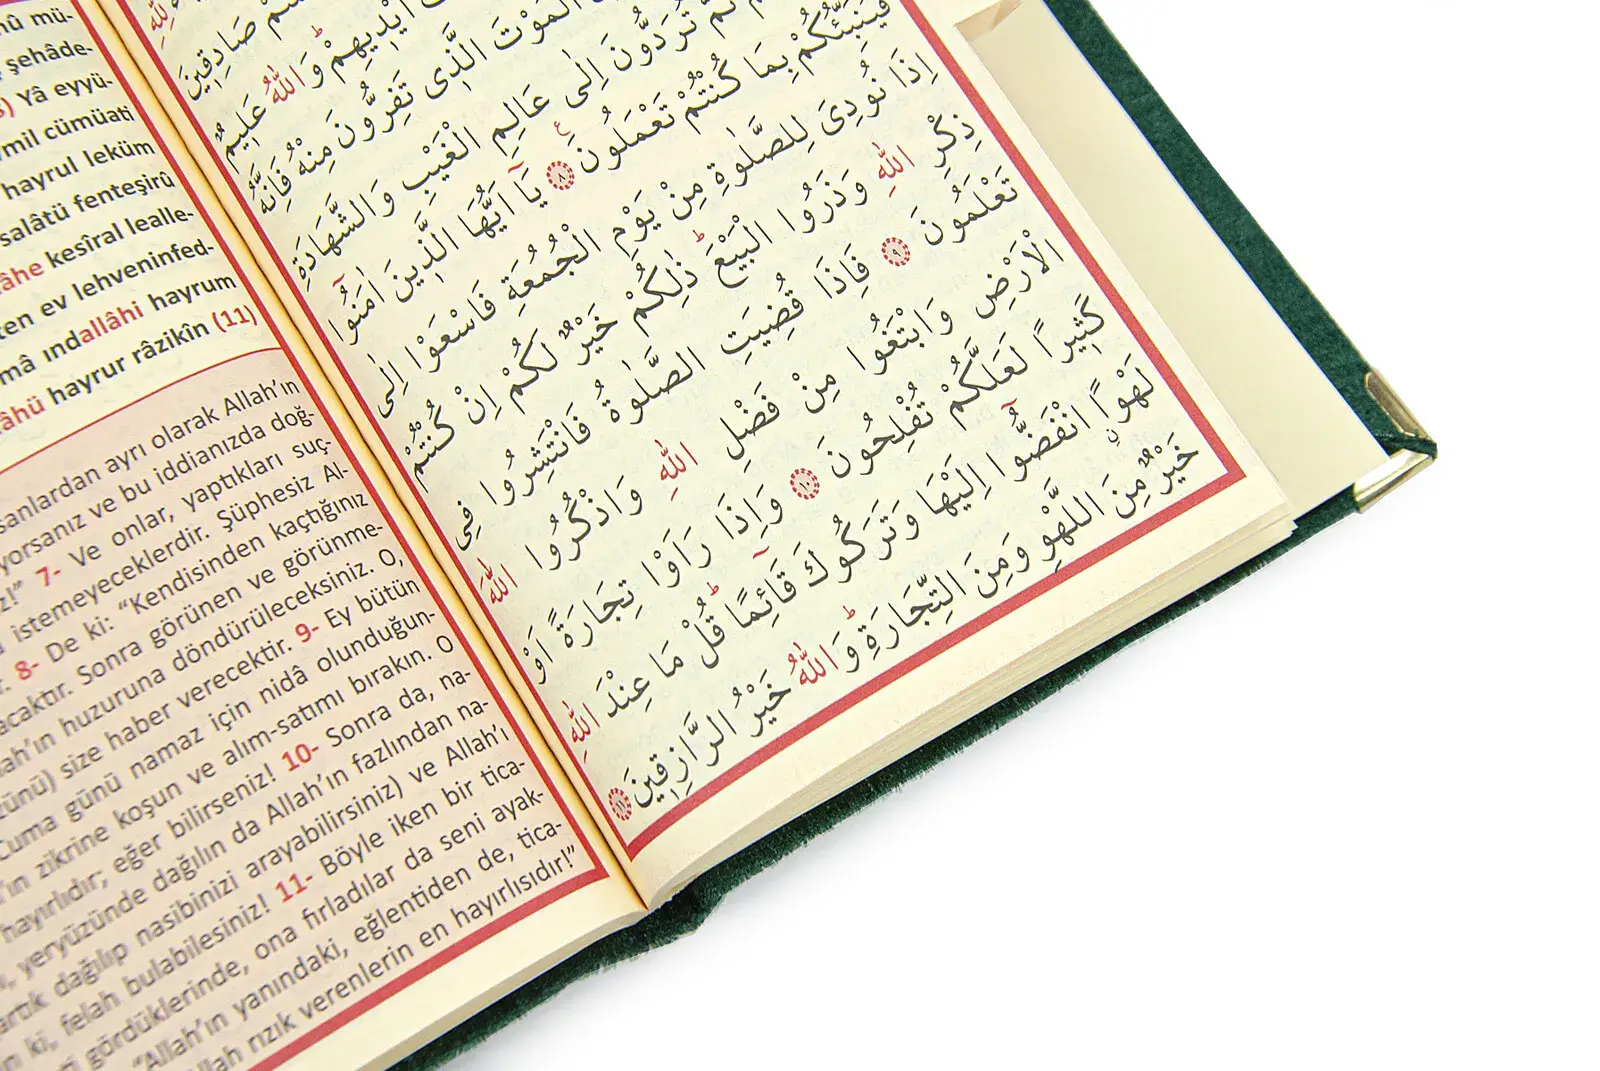 nû mü-
şehâde-
Yâ eyyü-
mil cümüati
hayrul leküm
salâtü fenteşirû
âhe kesîral lealle-
ten ev lehveninfed-
mâ ındallâhi hayrum
âhü hayrur râzikîn (11)
sanlardan ayrı olarak Allah’ın
yorsanız ve bu iddianızda doğ-
z!” 7- Ve onlar, yaptıkları suç-
istemeyeceklerdir. Şüphesiz Al-
8- De ki: “Kendisinden kaçtığınız
acaktır. Sonra görünen ve görünme-
lah’ın huzuruna döndürüleceksiniz. O,
zünü) size haber verecektir. 9- Ey bütün
Cuma günü namaz için nidâ olunduğun-
’ın zikrine koşun ve alım-satımı bırakın. O
hayırlıdır; eğer bilirseniz! 10- Sonra da, na-
yeryüzünde dağılın da Allah’ın fazlından na-
artık dağılıp nasibinizi arayabilirsiniz) ve Allah’ı
ki, felah bulabilesiniz! 11- Böyle iken bir tica-
gördüklerinde, ona fırladılar da seni ayak-
“Allah’ın yanındaki, eğlentiden de, tica-
Allah rızık verenlerin en hayırlısıdır!”
صَادِقِينَ
اَيْدِيهِمْ وَاللّٰهُ عَلِيمٌ
الْمَوْتَ الَّذِى تَفِرُّونَ مِنْهُ فَاِنَّهُ
ثُمَّ تُرَدُّونَ اِلٰى عَالِمِ الْغَيْبِ وَالشَّهَادَةِ
فَيُنَبِّئُكُمْ بِمَا كُنْتُمْ تَعْمَلُونَ ﴿٨﴾ يَٓا اَيُّهَا الَّذِينَ اٰمَنُٓوا
اِذَا نُودِىَ لِلصَّلٰوةِ مِنْ يَوْمِ الْجُمُعَةِ فَاسْعَوْا اِلٰى
ذِكْرِ اللّٰهِ وَذَرُوا الْبَيْعَ ذٰلِكُمْ خَيْرٌ لَكُمْ اِنْ كُنْتُمْ
تَعْلَمُونَ ﴿٩﴾ فَاِذَا قُضِيَتِ الصَّلٰوةُ فَانْتَشِرُوا فِى
الْاَرْضِ وَابْتَغُوا مِنْ فَضْلِ اللّٰهِ وَاذْكُرُوا اللّٰهَ
كَثِيرًا لَعَلَّكُمْ تُفْلِحُونَ ﴿١٠﴾ وَاِذَا رَاَوْا تِجَارَةً اَوْ
لَهْوًا انْفَضُّٓوا اِلَيْهَا وَتَرَكُوكَ قَٓائِمًا قُلْ مَا عِنْدَ اللّٰهِ
خَيْرٌ مِنَ اللَّهْوِ وَمِنَ التِّجَارَةِ وَاللّٰهُ خَيْرُ الرَّازِقِينَ ﴿١١﴾